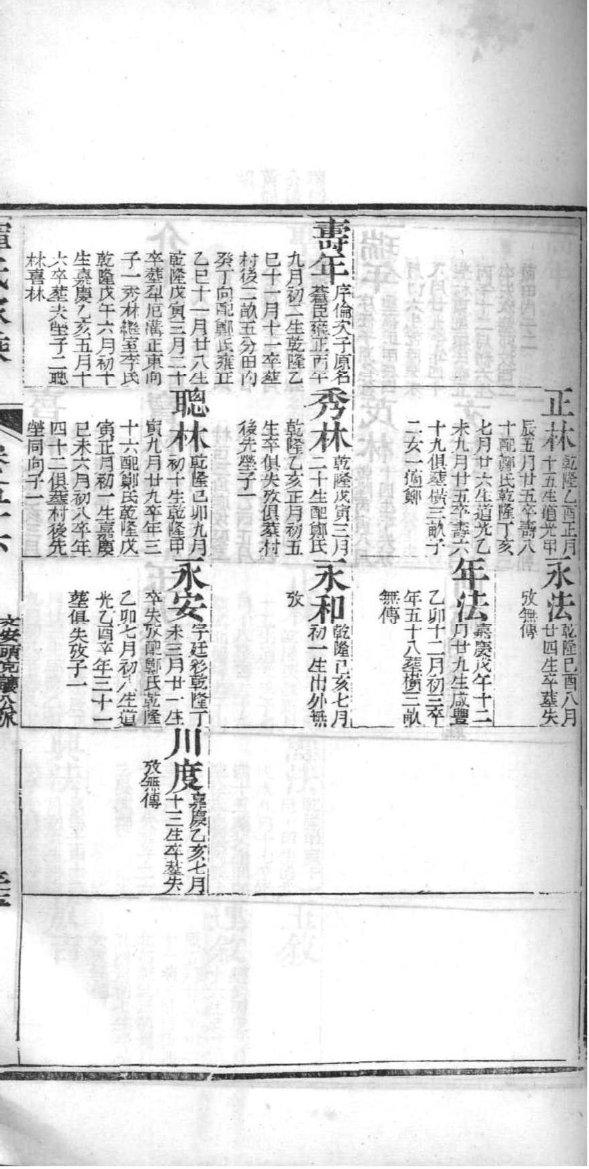 壽年
序倫次子原名
蓋臣雍正丙午
九月初二生乾隆乙
巳十一月十一卒塟
村後二畝五分田內
癸丁向配鄭氏雍正
乙巳十一月廿八生
乾隆戊寅三月二十
卒塟犁尼溝正東向
子一秀林繼室李氏
乾隆戊午六月初十
生嘉慶乙亥五月十
六卒塟夫塋子二聰
林喜林
正林
乾隆乙酉正月
十五生道光甲
辰五月廿五卒壽八
十配鄭氏乾隆丁亥
七月廿六生道光乙
未九月廿五卒壽六
十九俱塟橫三畝子
二女一適鄭
秀林
乾隆戊寅三月
二十生配鄭氏
乾隆乙亥正月初五
生卒俱失攷俱塟村
後先塋子一
聰林
乾隆己卯九月
初十生乾隆甲
寅九月廿九卒年三
十六配鄭氏乾隆戊
寅正月初一生嘉慶
己未六月初八卒年
四十二俱塟村後先
塋同向子一
永法
乾隆己酉八月
廿四生卒塟失
攷無傳
年法
嘉慶戊午十二
月廿九生咸豐
乙卯十二月初三卒
年五十八塟橫三畝
無傳
永和
乾隆己亥七月
初一生出外無
攷
永安
字廷彩乾隆丁
未三月廿一生
卒失攷配鄭氏乾隆
乙卯七月初八生道
光乙酉卒年三十一
塟俱失攷子一
川度
嘉慶乙亥七月
十三生卒塟失
攷無傳